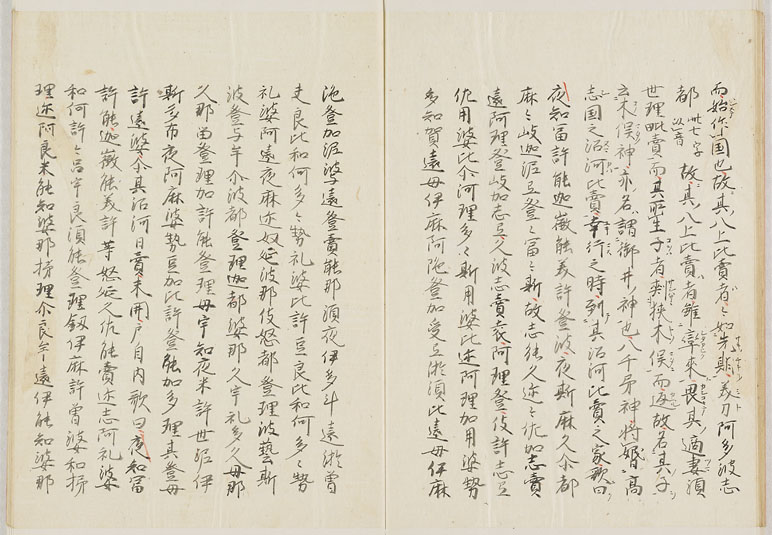 而始作国也故其八上比賣者々如先期美刀阿多波志
都此七字以音故其八上比賣者雖率来畏其適妻須
世理毗賣而其所生子者刺挟木俣而返故名其子
云木俣神亦名謂御井神也八千矛神将婚高
志国之沼河比賣幸行之時到其沼河比賣之家歌曰
夜知富許能迦微能美許登波夜斯麻久尓都
麻々岐迦泥弖登々富々斯故志能久迩々佐加志賣
遠阿理登岐加志弖久波志賣袁阿理登伎許志弖
佐用婆比尓阿理多々斯用婆比迩阿理加用婆勢
多知賀遠母伊麻阿陁登加受弖淤須比遠母伊麻
陁登加泥波遠登賣能那須夜伊多斗遠淤曾
夫良比和何多々勢礼婆比許豆良比和何多々勢
礼婆阿遠夜麻迩奴延波那伎怒都登理波藝斯
波登与牟尓波都登理迦都婆那久宇礼多久母那
久那留登理加許能登理母宇知夜米許世泥伊
斯多布夜阿麻婆勢豆加比許登能加多理其登母
許遠婆尓其沼河日賣未開戸自内歌曰夜知富
許能迦微能美許等怒延久佐能賣迩志阿礼婆
和何許々呂宇良須能登理叙伊麻許曾婆和抒
理迩阿良米能知婆那抒理尓良牟遠伊能知婆那